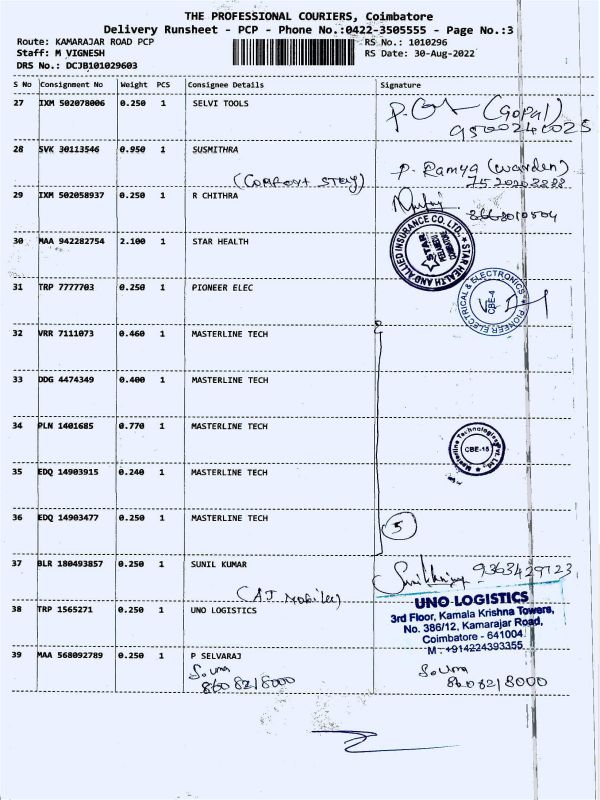 THE PROFESSIONAL COURIERS, Coimbatore
Delivery Runsheet - PCP - Phone No.:0422-3505555 - Page No.:3
Route: KAMARAJAR ROAD PCP
RS No.: 1010296
Staff: M VIGNESH
RS Date: 30-Aug-2022
DRS No.: DCJB101029603
S No Consignment No Weight PCS Consignee Details Signature
27 IXM 502078006 0.250 1 SELVI TOOLS
(Gopal)
9500240025
28 SVK 30113546 0.950 1 SUSMITHRA
P. Ramya (Warden)
29 IXM 502058937 0.250 1 R CHITHRA
STAR HEALTH AND ALLIED INSURANCE CO. LTD.
STAR
COIMBATORE
30 MAA 942282754 2.100 1 STAR HEALTH
31 TRP 7777703 0.250 1 PIONEER ELEC
PIONEER ELECTRICAL & ELECTRONICS
CBE-4
32 VRR 7111073 0.460 1 MASTERLINE TECH
33 DDG 4474349 0.400 1 MASTERLINE TECH
34 PLN 1401685 0.770 1 MASTERLINE TECH
Masterline Technologies Pvt. Ltd.
CBE-15
35 EDQ 14903915 0.240 1 MASTERLINE TECH
36 EDQ 14903477 0.250 1 MASTERLINE TECH
5
37 BLR 180493857 0.250 1 SUNIL KUMAR
9363429123
(AJ Mobiles)
38 TRP 1565271 0.250 1 UNO LOGISTICS
UNO LOGISTICS
3rd Floor, Kamala Krishna Towers,
No. 386/12, Kamarajar Road,
Coimbatore - 641004
M - +914224393355
39 MAA 568092789 0.250 1 P SELVARAJ